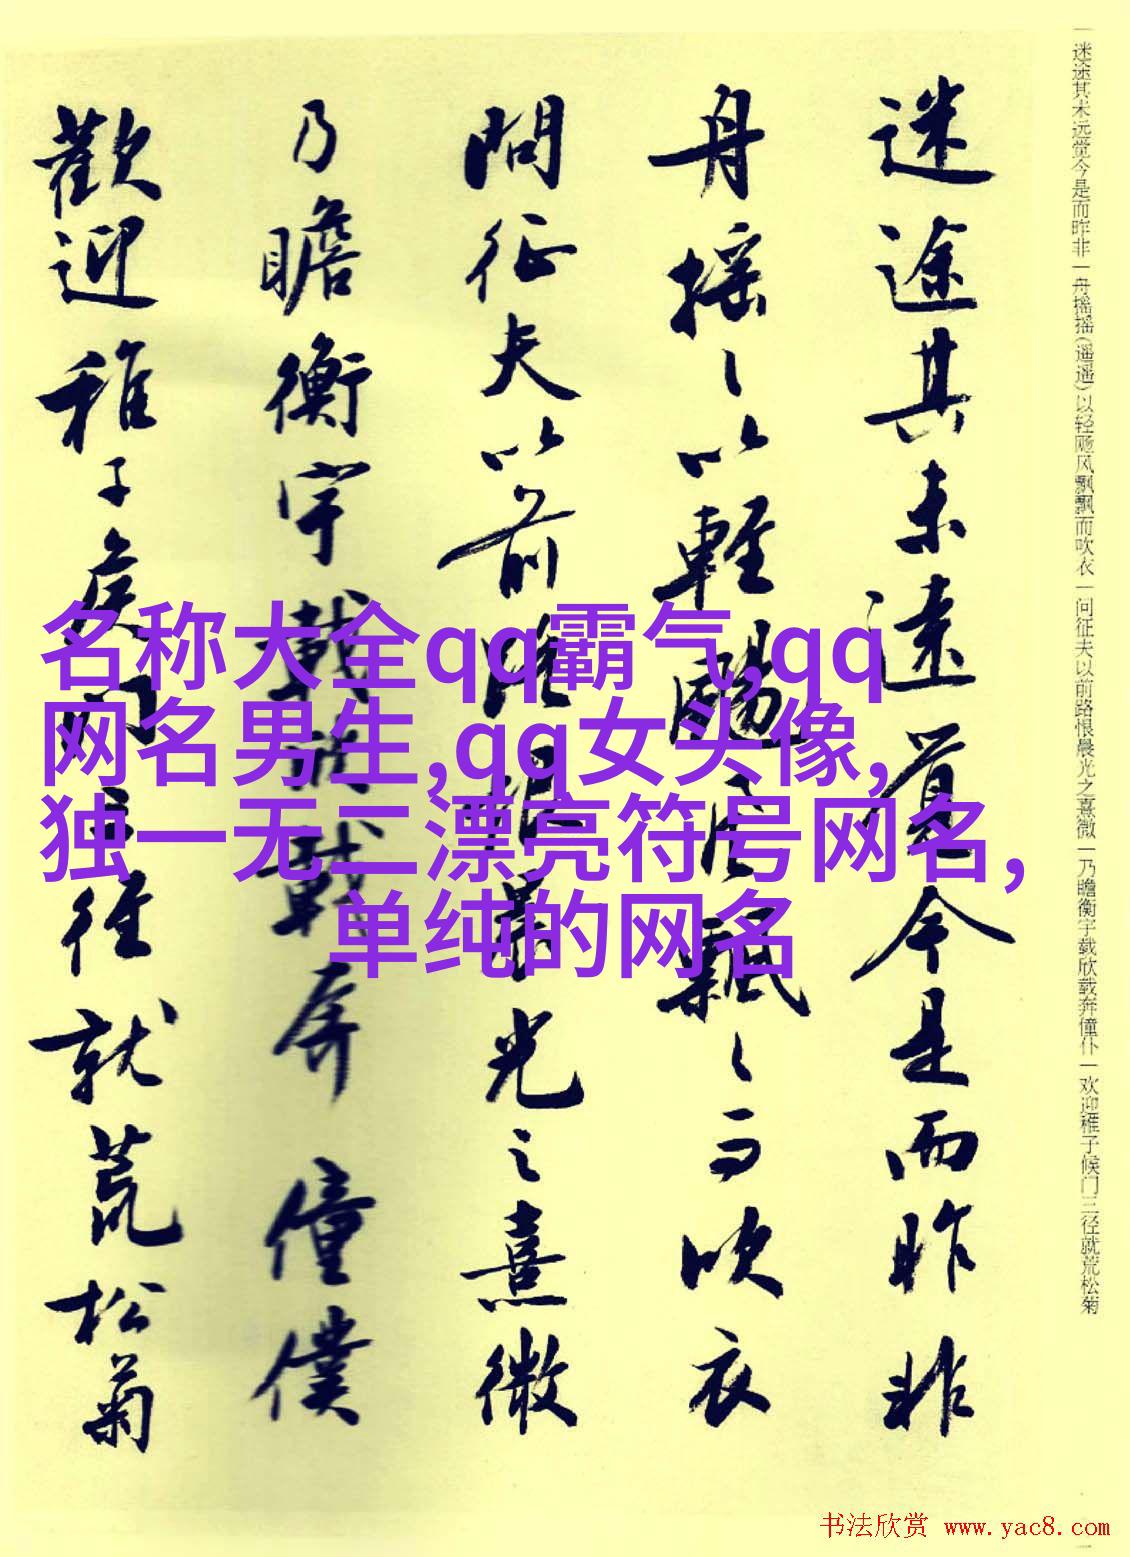 迷途其未远觉今是而昨非一舟摇摇(遥遥)以轻飏风飘飘而吹衣一问征夫以前路恨晨光之熹微一乃瞻衡宇载欣载奔僮仆一欢迎稚子候门三径就荒松菊
迷途其未遠覺今是而昨非
舟摇〻以輕颺風飄〻而吹衣
問征夫以前路恨晨光之熹微
乃瞻衡宇載欣載奔僮僕
歡迎稚子候門三徑就荒松菊
名称大全qq霸气,qq
网名男生,qq女头像,
独一无二漂亮符号网名,
单纯的网名
书法欣赏 www.yac8.com